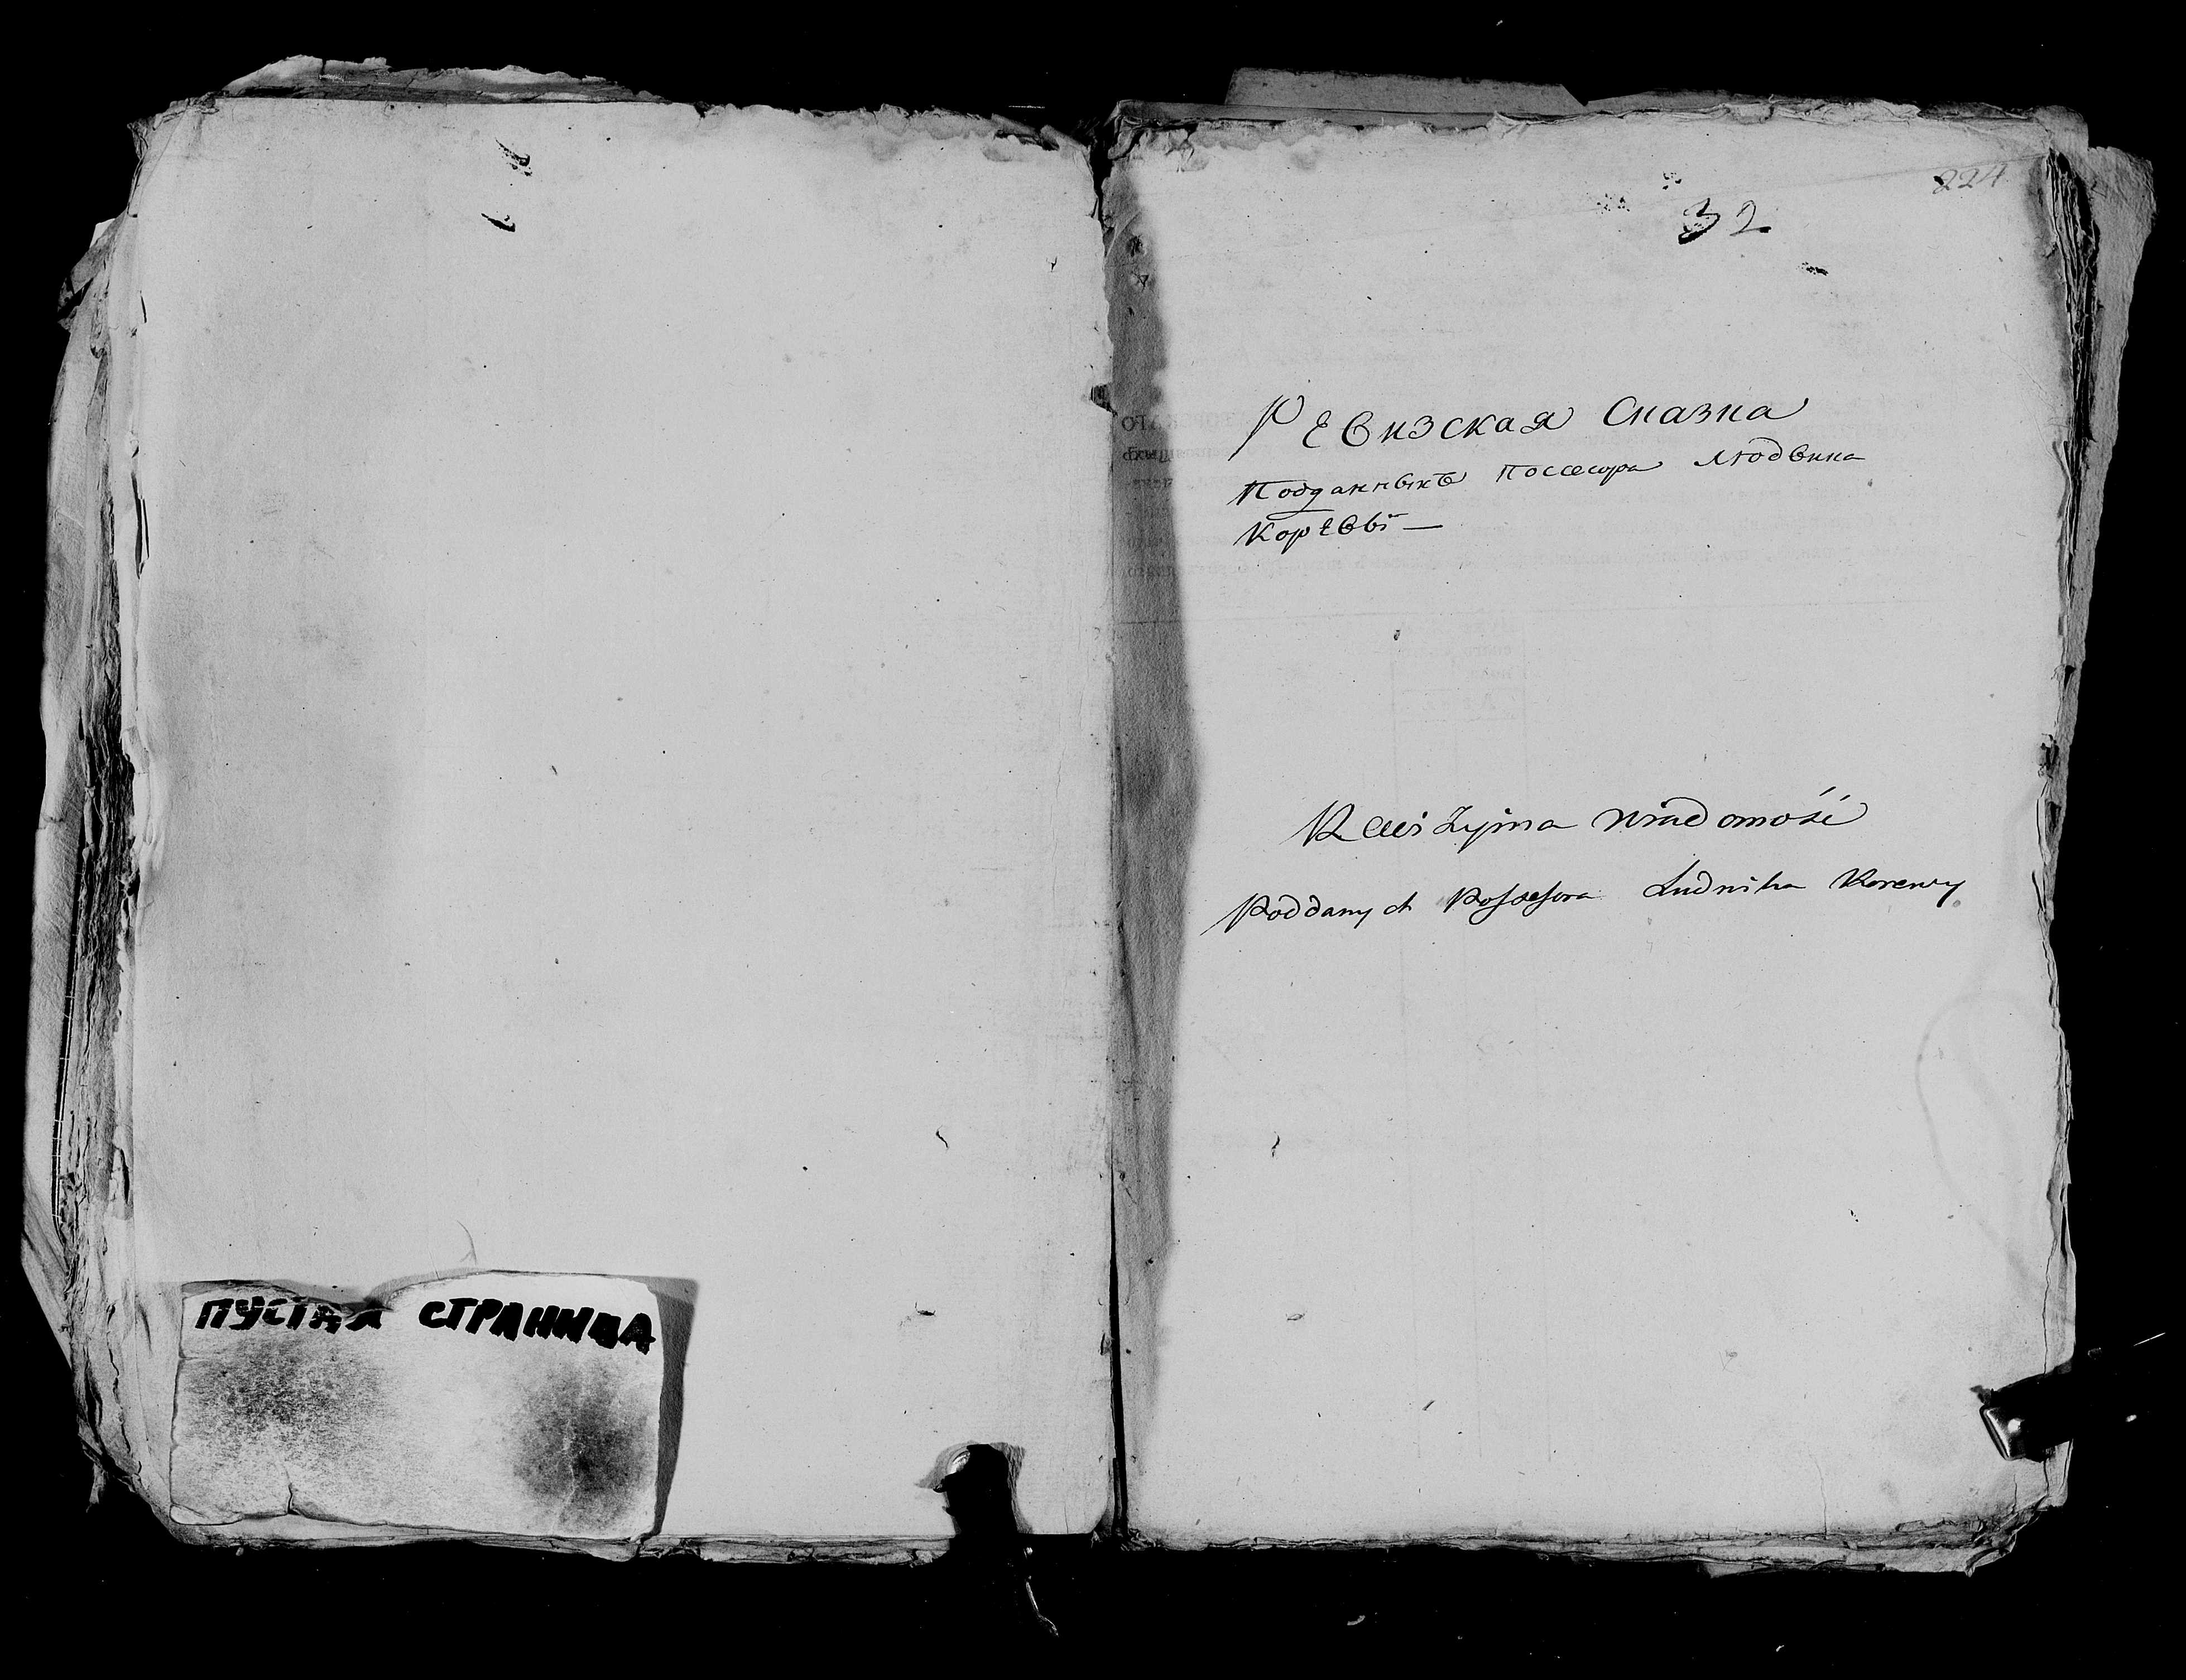 ПУСТАЯ СТРАНИЦА
224
32
Ревизская Сказка
Подданныхъ поссесора Людвика
Коревы —
Rewizyina wiadomość
Poddanych Possesora Ludwika Korewy